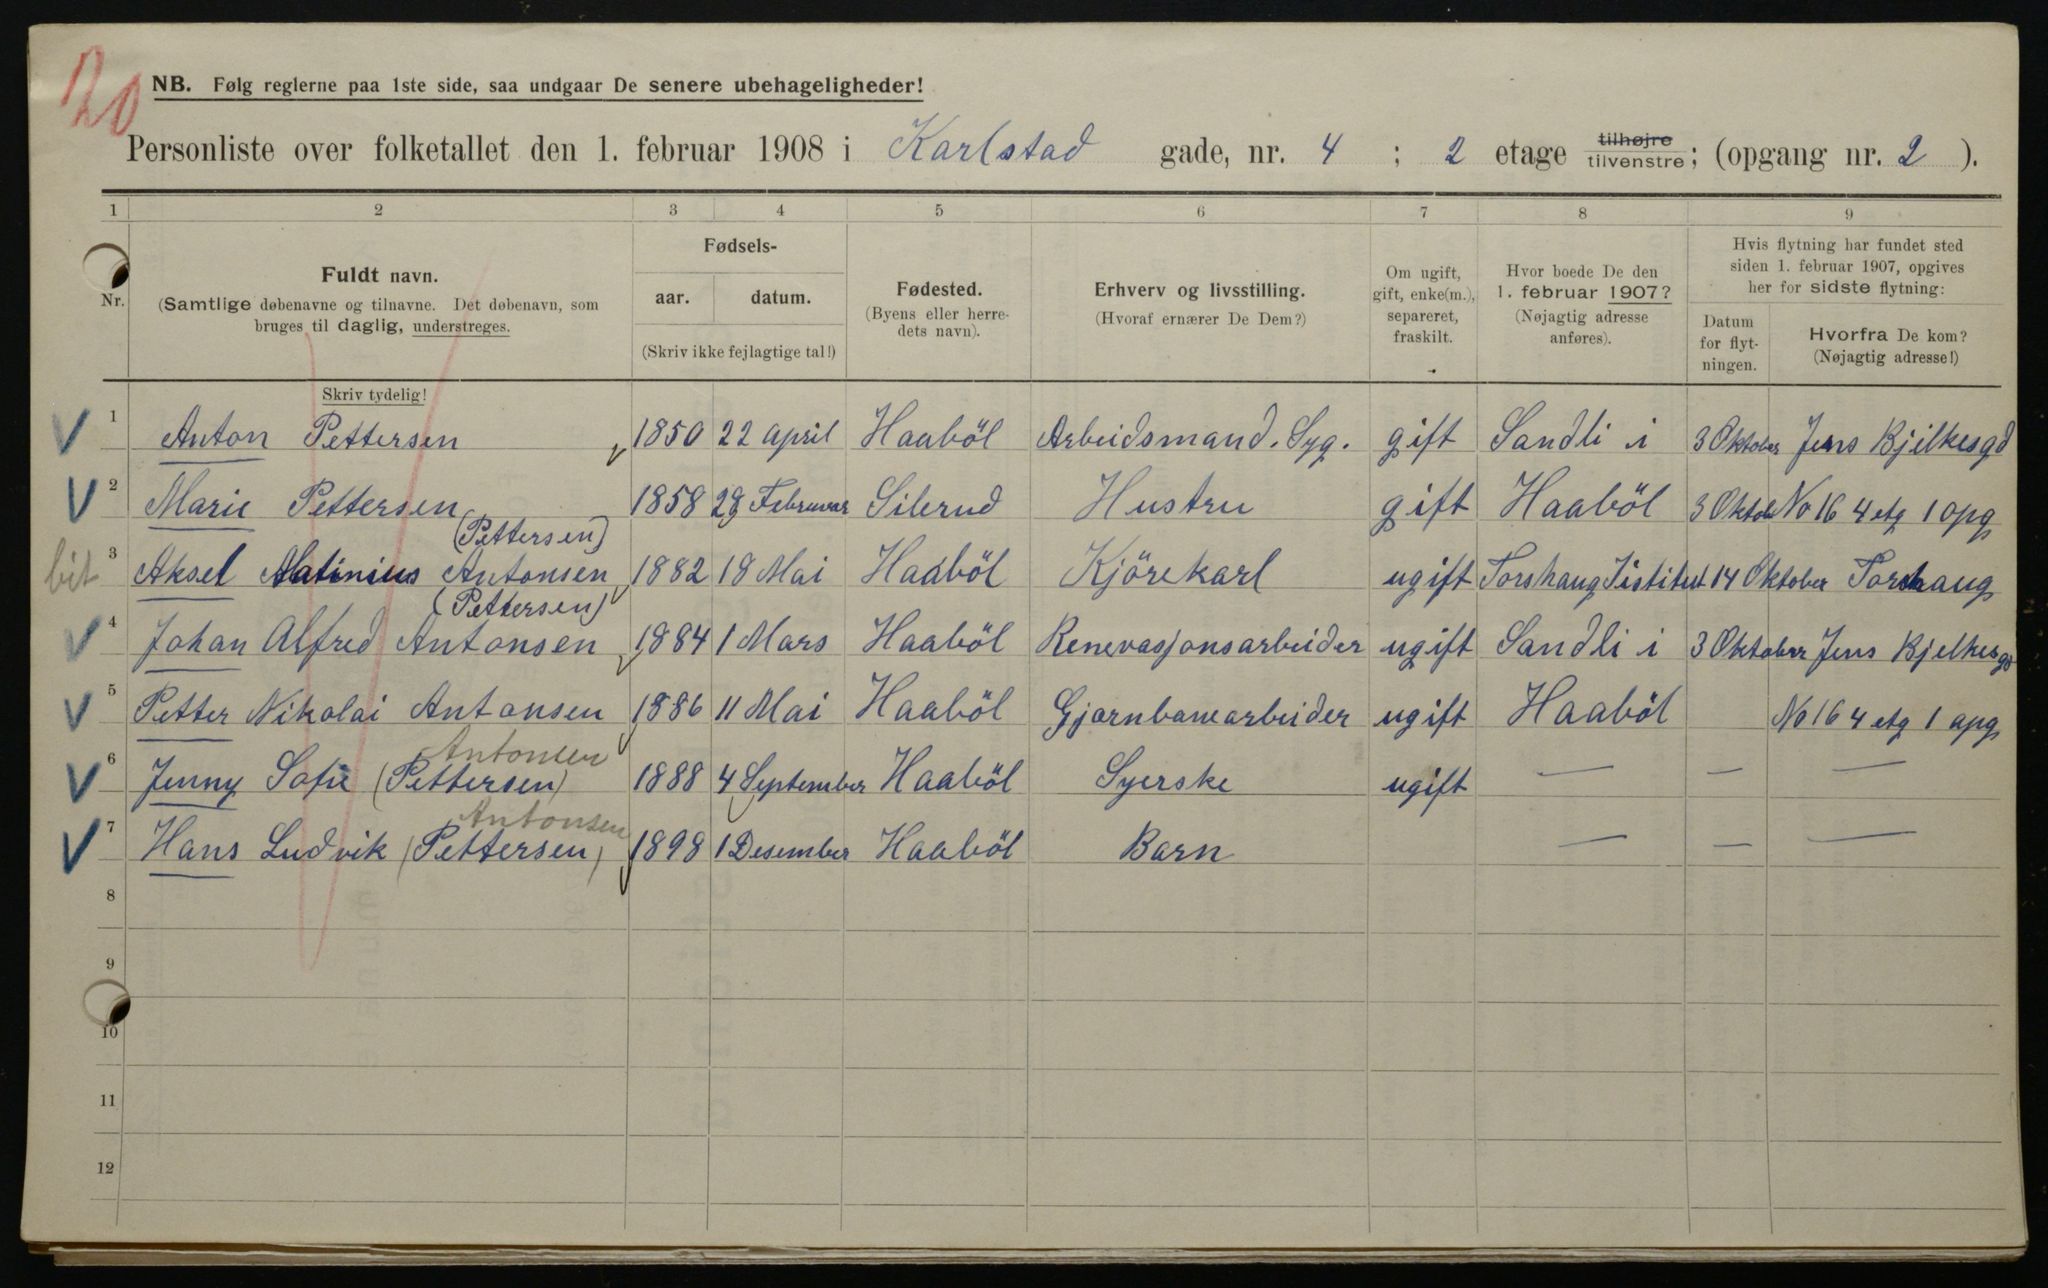 20
NB. Følg reglerne paa 1ste side, saa undgaar De senere ubehageligheder!
Personliste over folketallet den 1. februar 1908 i Karlstad gade, nr. 4 ; 2 etage tilhøjre tilvenstre; (opgang nr. 2 ).
1 2 3 4 5 6 7 8 9
Nr.
Fuldt navn.
(Samtlige døbenavne og tilnavne. Det døbenavn, som
bruges til daglig, understreges.
Skriv tydelig!
Fødsels-
aar. datum.
(Skriv ikke fejlagtige tal!)
Fødested.
(Byens eller herre-
dets navn).
Erhverv og livsstilling.
(Hvoraf ernærer De Dem?)
Om ugift,
gift, enke(m.),
separeret,
fraskilt.
Hvor boede De den
1. februar 1907?
(Nøjagtig adresse
anføres).
Hvis flytning har fundet sted
siden 1. februar 1907, opgives
her for sidste flytning:
Datum
for flyt-
ningen.
Hvorfra De kom?
(Nøjagtig adresse!)
1 Anton Pettersen 1850 22 april Haaböl Arbeidsmand. Syg. gift Sandli i 3 Oktober Jens Bjelkesgd
2 Marie Pettersen 1858 28 Februar Silerud Hustru gift Haaböl 3 Oktob No 16 4 etg 1 opg
(Pettersen)
bit 3 Aksel Matinius Antonsen 1882 18 Mai Haaböl Kjörekarl ugift Torshaug Jistitut 14 Oktober Torshaug
(Pettersen)
4 Johan Alfred Antonsen 1884 1 Mars Haaböl Renevasjonsarbeider ugift Sandli i 3 Oktober Jens Bjelkesgd
5 Petter Nikolai Antonsen 1886 11 Mai Haaböl Gjärnbanearbeider ugift Haaböl No 16 4 etg 1 apg
Antonsen
6 Jenny Sofie (Pettersen) 1888 4 September Haaböl Syerske ugift — — —
Antonsen
7 Hans Ludvik (Pettersen) 1898 1 Desember Haaböl Barn — — —
8
9
10
11
12